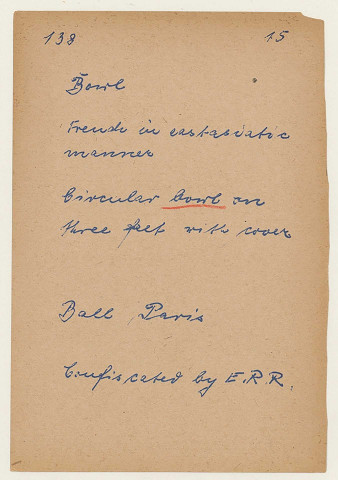 138 15
Bowl
French in eastasiatic
manner
Circular bowl on
three feet with cover
Ball Paris
Confiscated by E.R.R.